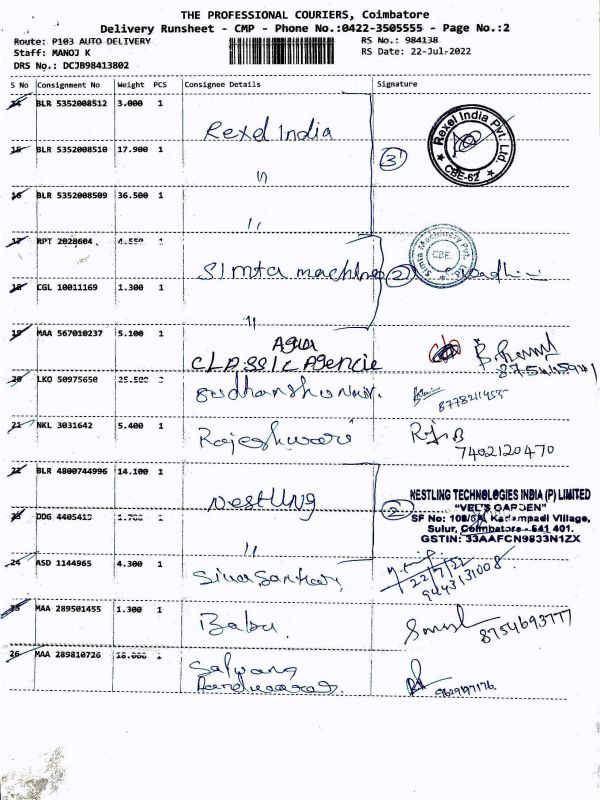 THE PROFESSIONAL COURIERS, Coimbatore
Delivery Runsheet - CMP - Phone No.:0422-3505555 - Page No.:2
Route: P103 AUTO DELIVERY
Staff: MANOJ K
DRS No.: DCJB98413802
RS No.: 984138
RS Date: 22-Jul-2022
S No Consignment No Weight PCS Consignee Details Signature
14 BLR 5352008512 3.000 1 Rexel India
Rexel India Pvt. Ltd.
★ CBE-62 ★
15 BLR 5352008510 17.900 1 〃 3
16 BLR 5352008509 36.500 1 〃
17 RPT 2028604 4.550 1 Simta machine 2
Simta Machinery Pvt. Ltd
CBE.
18 CGL 10011169 1.300 1 〃
19 MAA 567010237 5.100 1 Aqua
CLASSIC Agencie
20 LKO 50975650 25.500 Sudhanshu
8778211455
21 NKL 3031642 5.400 1 Rajeshwari
7402120470
22 BLR 4800744996 14.100 1 Nestling 2
NESTLING TECHNOLOGIES INDIA (P) LIMITED
"VEL'S GARDEN"
SF No: Kadampadi Village,
Sulur, Coimbatore - 641 401.
GSTIN: 33AAFCN9833N1ZX
23 DDG 4405419 1.700 1 〃
24 ASD 1144965 4.300 1 Sivasankar
22/7/22
9443131008
25 MAA 289501455 1.300 1 Babu.
8754693777
26 MAA 289810726 18.000 1